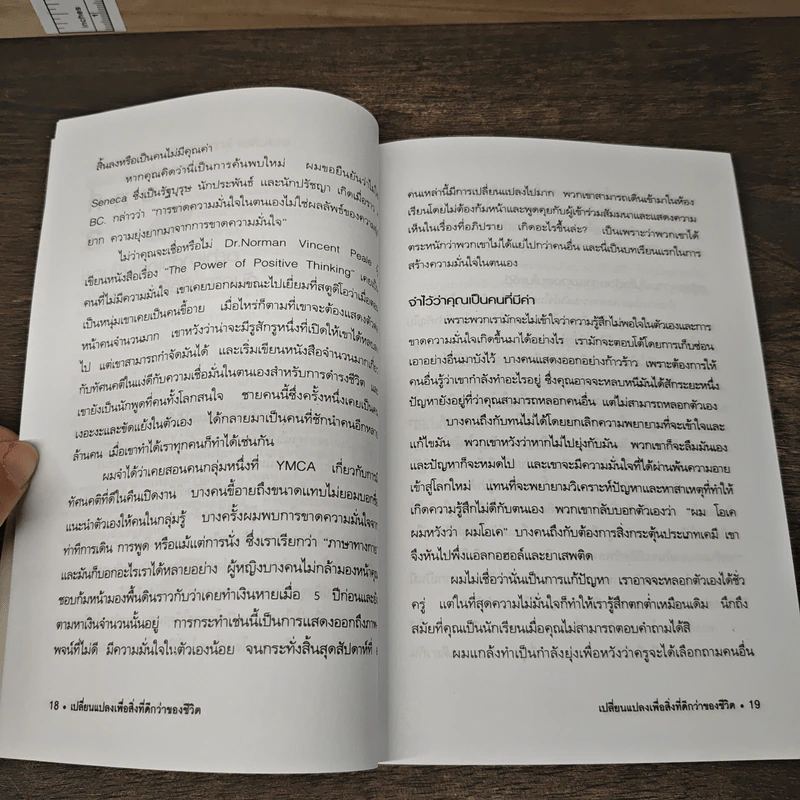 inches
1
สิ้นลงหรือเป็นคนไม่มีคุณค่า
หากคุณคิดว่านี่เป็นการค้นพบใหม่ ผมขอยืนยันว่าไม่ใช่
Seneca ซึ่งเป็นรัฐบุรุษ นักประพันธ์ และนักปรัชญา เกิดเมื่อราว
BC. กล่าวว่า "การขาดความมั่นใจในตนเองไม่ใช่ผลลัพธ์ของความยุ่ง
ยาก ความยุ่งยากมาจากการขาดความมั่นใจ"
ไม่ว่าคุณจะเชื่อหรือไม่ Dr.Norman Vincent Peale
เขียนหนังสือเรื่อง "The Power of Positive Thinking" เคยเป็น
คนที่ไม่มีความมั่นใจ เขาเคยบอกผมขณะไปเยี่ยมที่สตูดิโอว่าเมื่อตอน
เป็นหนุ่มเขาเคยเป็นคนขี้อาย เมื่อไหร่ก็ตามที่เขาจะต้องแสดงตัวต่อ
หน้าคนจำนวนมาก เขาหวังว่าน่าจะมีรูสักรูหนึ่งที่เปิดให้เขาได้หลบลง
ไป แต่เขาสามารถกำจัดมันได้ และเริ่มเขียนหนังสือจำนวนมากเกี่ยว
กับทัศนคติในแง่ดีกับความเชื่อมั่นในตนเองสำหรับการดำรงชีวิต และ
เขายังเป็นนักพูดที่คนทั้งโลกสนใจ ชายคนนี้ซึ่งครั้งหนึ่งเคยเป็นคน
เงอะงะและขัดแย้งในตัวเอง ได้กลายมาเป็นคนที่ชักนำคนอีกหลาย
ล้านคน เมื่อเขาทำได้เราทุกคนก็ทำได้เช่นกัน
ผมจำได้ว่าเคยสอนคนกลุ่มหนึ่งที่ YMCA เกี่ยวกับการมี
ทัศนคติที่ดีในคืนเปิดงาน บางคนขี้อายถึงขนาดแทบไม่ยอมบอกชื่อ
แนะนำตัวเองให้คนในกลุ่มรู้ บางครั้งผมพบการขาดความมั่นใจจาก
ท่าทีการเดิน การพูด หรือแม้แต่การนั่ง ซึ่งเราเรียกว่า "ภาษาทางกาย"
และมันก็บอกอะไรเราได้หลายอย่าง ผู้หญิงบางคนไม่กล้ามองหน้าคุณ
ชอบก้มหน้ามองพื้นดินราวกับว่าเคยทำเงินหายเมื่อ 5 ปีก่อนและยัง
ตามหาเงินจำนวนนั้นอยู่ การกระทำเช่นนี้เป็นการแสดงออกถึงภาพ
พจน์ที่ไม่ดี มีความมั่นใจในตัวเองน้อย จนกระทั่งสิ้นสุดสัปดาห์ที่
18 • เปลี่ยนแปลงเพื่อสิ่งที่ดีกว่าของชีวิต
คนเหล่านี้มีการเปลี่ยนแปลงไปมาก พวกเขาสามารถเดินเข้ามาในห้อง
เรียนโดยไม่ต้องก้มหน้าและพูดคุยกับผู้เข้าร่วมสัมมนาและแสดงความ
เห็นในเรื่องที่อภิปราย เกิดอะไรขึ้นล่ะ? เป็นเพราะว่าพวกเขาได้
ตระหนักว่าพวกเขาไม่ได้แย่ไปกว่าคนอื่น และนี่เป็นบทเรียนแรกในการ
สร้างความมั่นใจในตนเอง
จำไว้ว่าคุณเป็นคนที่มีค่า
เพราะพวกเรามักจะไม่เข้าใจว่าความรู้สึกไม่พอใจในตัวเองและการ
ขาดความมั่นใจเกิดขึ้นมาได้อย่างไร เรามักจะตอบโต้โดยการเก็บซ่อน
เอาอย่างอื่นมาบังไว้ บางคนแสดงออกอย่างก้าวร้าว เพราะต้องการให้
คนอื่นรู้ว่าเขากำลังทำอะไรอยู่ ซึ่งคุณอาจจะหลบหนีมันได้สักระยะหนึ่ง
ปัญหายังอยู่ที่ว่าคุณสามารถหลอกคนอื่น แต่ไม่สามารถหลอกตัวเอง
บางคนถึงกับทนไม่ได้โดยยกเลิกความพยายามที่จะเข้าใจและ
แก้ไขมัน พวกเขาหวังว่าหากไม่ไปยุ่งกับมัน พวกเขาก็จะลืมมันเอง
และปัญหาก็จะหมดไป และเขาจะมีความมั่นใจที่ได้ผ่านพ้นความอาย
เข้าสู่โลกใหม่ แทนที่จะพยายามวิเคราะห์ปัญหาและหาสาเหตุที่ทำให้
เกิดความรู้สึกไม่ดีกับตนเอง พวกเขากลับบอกตัวเองว่า "ผม โอเค
ผมหวังว่า ผมโอเค" บางคนถึงกับต้องการสิ่งกระตุ้นประเภทเคมี เขา
จึงหันไปพึ่งแอลกอฮอล์และยาเสพติด
ผมไม่เชื่อว่านั่นเป็นการแก้ปัญหา เราอาจจะหลอกตัวเองได้ชั่ว
ครู่ แต่ในที่สุดความไม่มั่นใจก็ทำให้เรารู้สึกตกต่ำเหมือนเดิม นึกถึง
สมัยที่คุณเป็นนักเรียนเมื่อคุณไม่สามารถตอบคำถามได้สิ
ผมแกล้งทำเป็นกำลังยุ่งเพื่อหวังว่าครูจะได้เลือกถามคนอื่น
เปลี่ยนแปลงเพื่อสิ่งที่ดีกว่าของชีวิต • 19